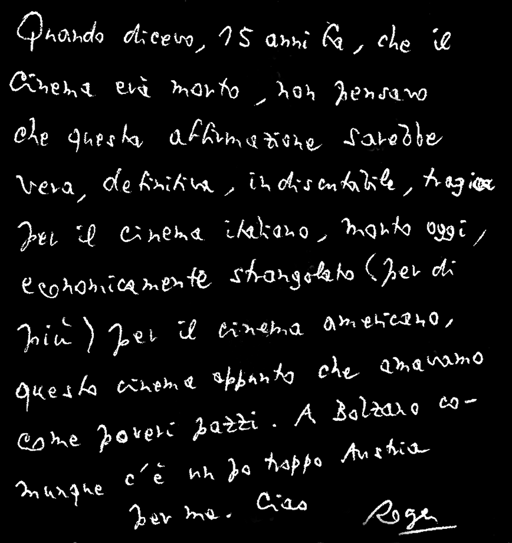 Quando dicevo, 15 anni fa, che il
cinema era morto, non pensavo
che questa affirmazione sarebbe
vera, definitiva, indiscutabile, tragica
per il cinema italiano, morto oggi,
economicamente strangolato (per di
più) per il cinema americano,
questo cinema appunto che amavamo
come poveri pazzi. A Bolzano co-
munque c'è un po troppo Austria
per me. Ciao Roger